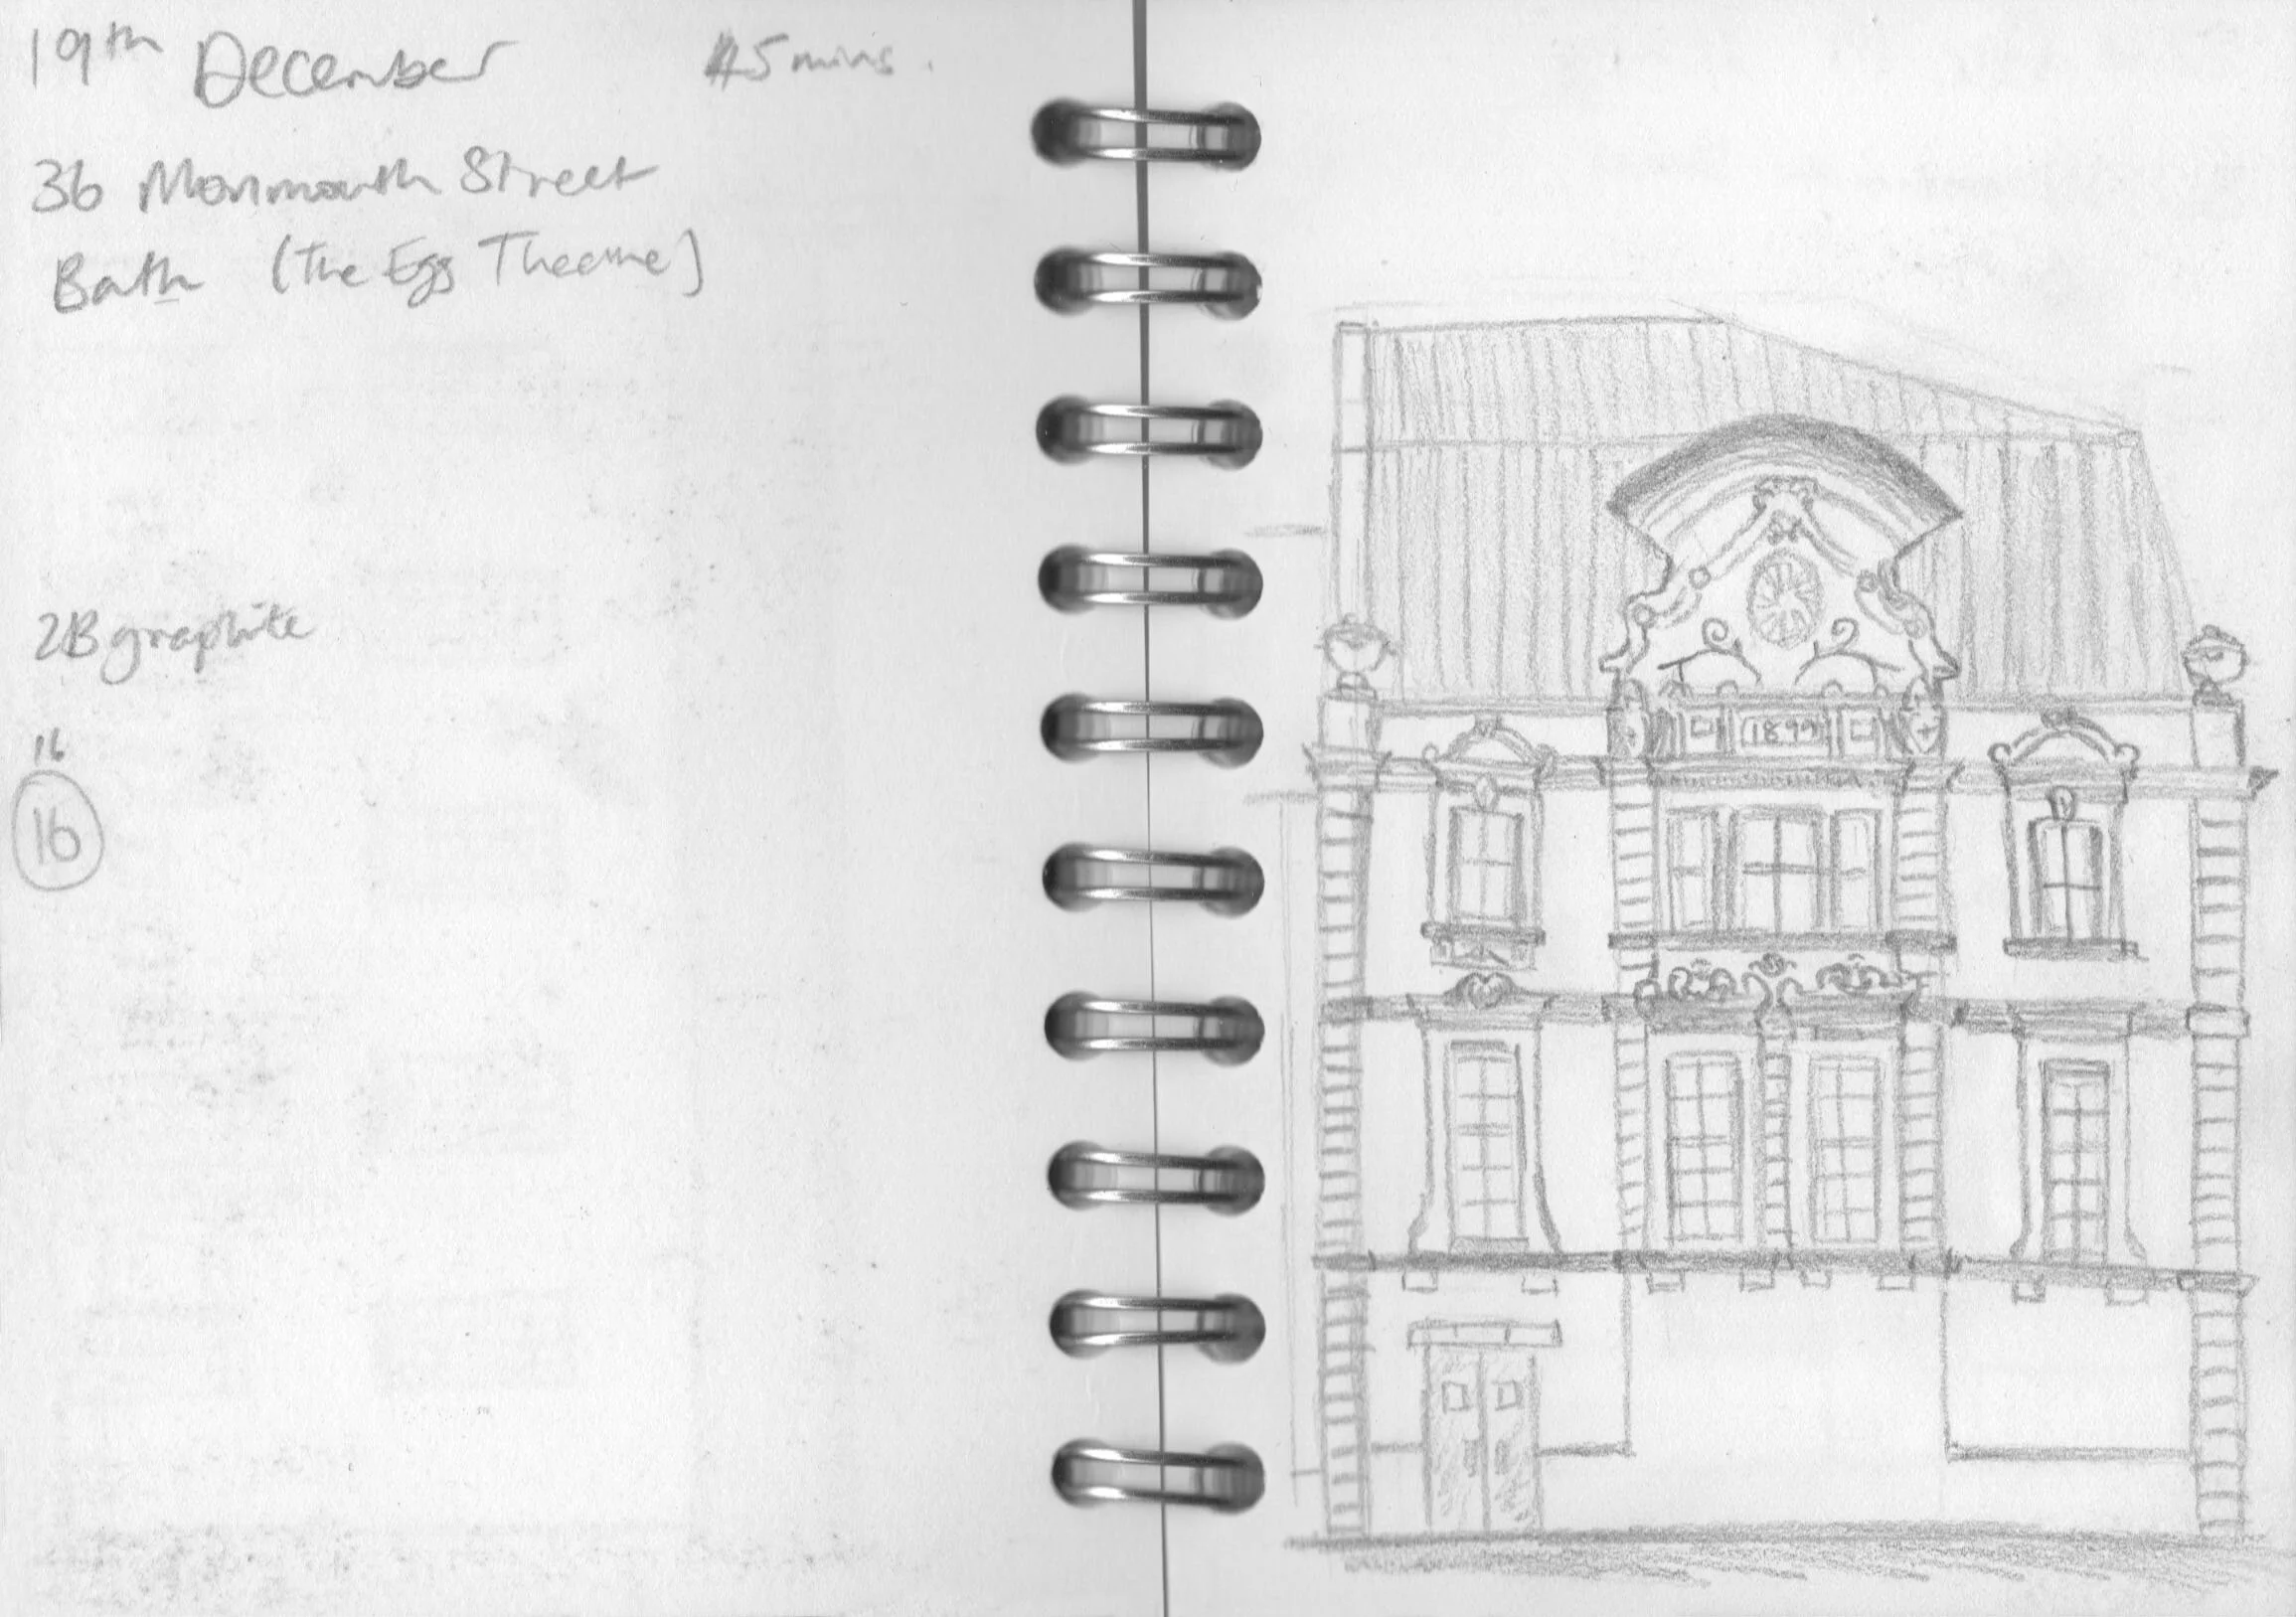 19th December 45 mins.
36 Monmouth Street
Bath (The Egg Theatre)
2B graphite
16
16
1899